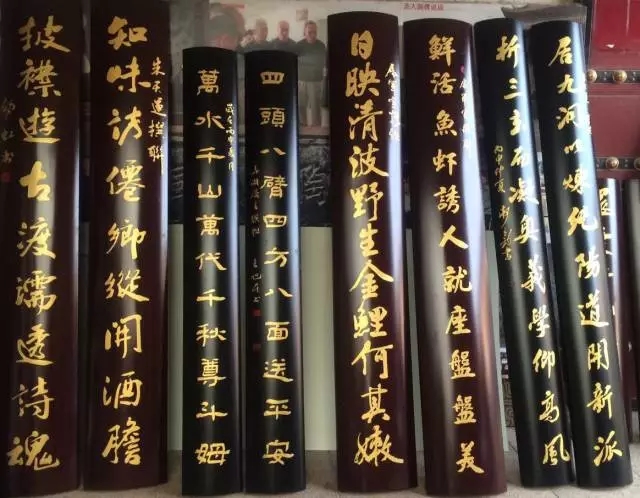 居九河以煉純陽道開新派
析三玄而凝奧義學仰高風
丙申仲夏
鮮活魚蝦誘人就座盤盤美
日映清波野生金鯉何其嫩
四頭八臂四方八面送平安
萬水千山萬代千秋尊斗姆
知味訪僊鄉縱開酒膽
披襟遊古渡濡透詩魂